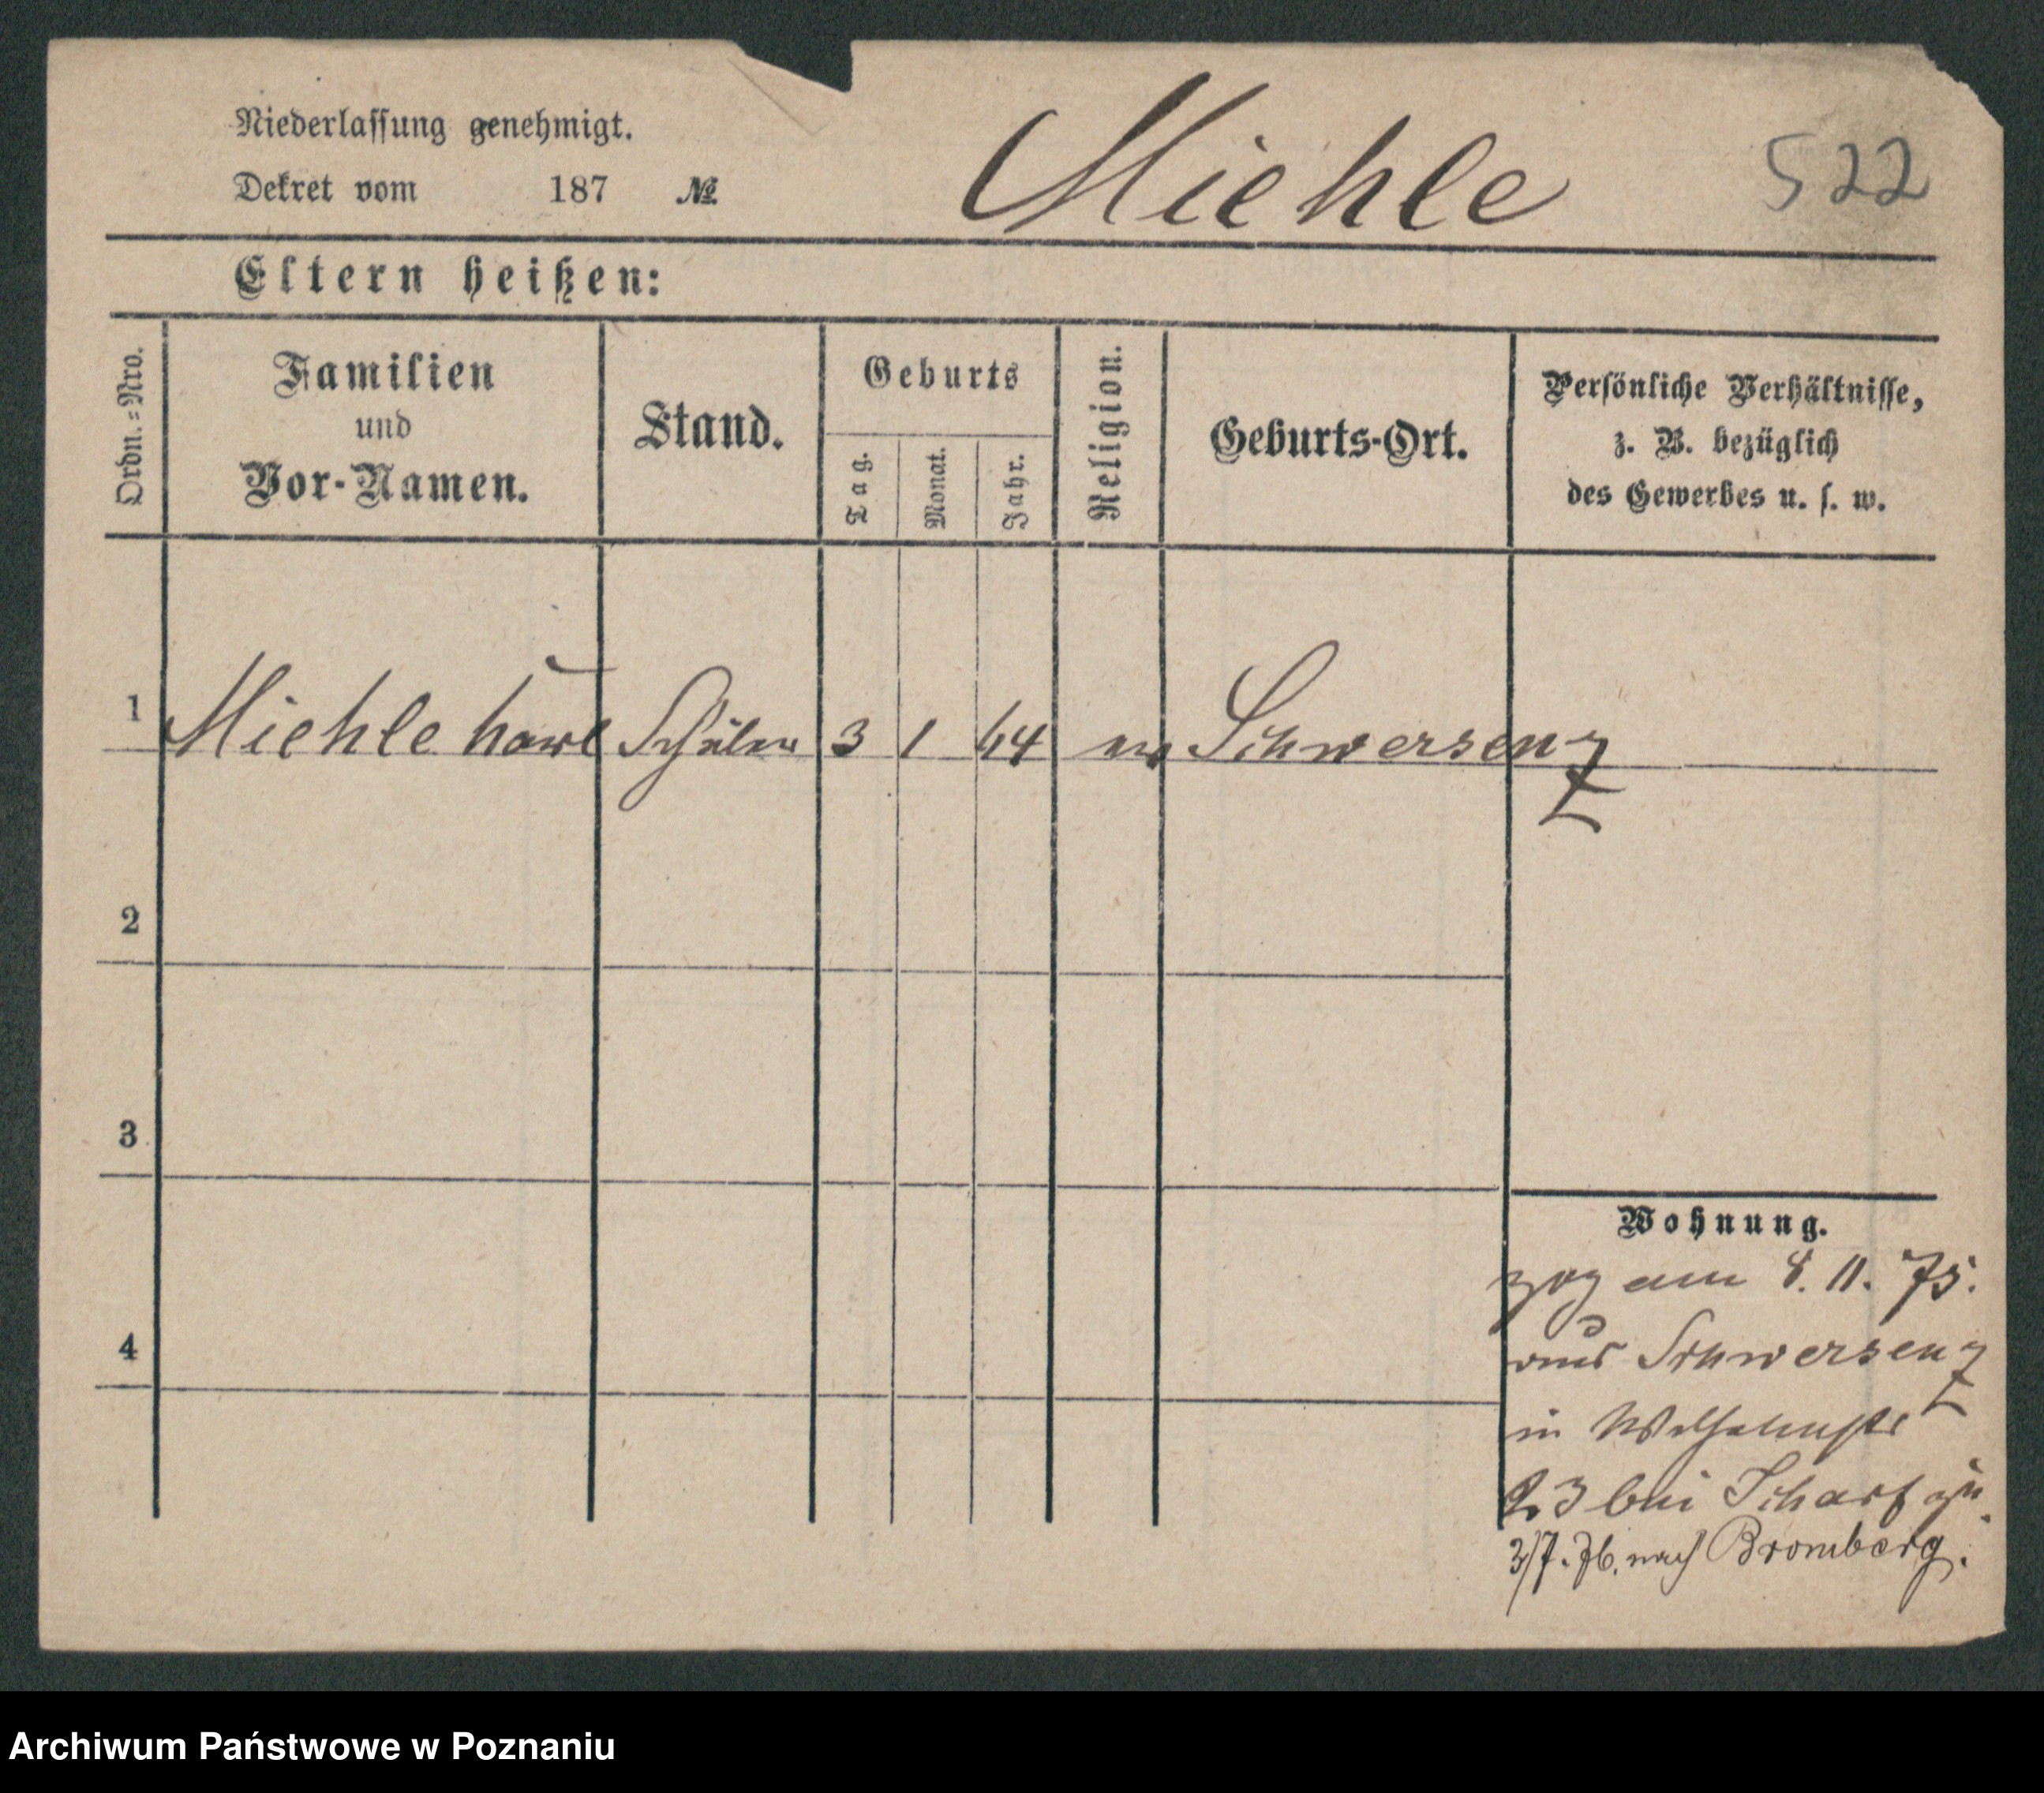 Niederlassung genehmigt.
Dekret vom 187 №
Miehle
522
Eltern heißen:
Ordn.=Nro.
Familien
und
Vor-Namen.
Stand.
Geburts
Tag.
Monat.
Jahr.
Religion.
Geburts-Ort.
Persönliche Verhältnisse,
z. B. bezüglich
des Gewerbes u. s. w.
1 Miehle Schüler 3 1 64 ev Schwersenz
2
3
4
Wohnung.
zog am 8. 11. 75.
aus Schwersenz
in Wilhelmstr
23 bei Scharf zu.
3/7. 76. nach Bromberg.
Archiwum Państwowe w Poznaniu